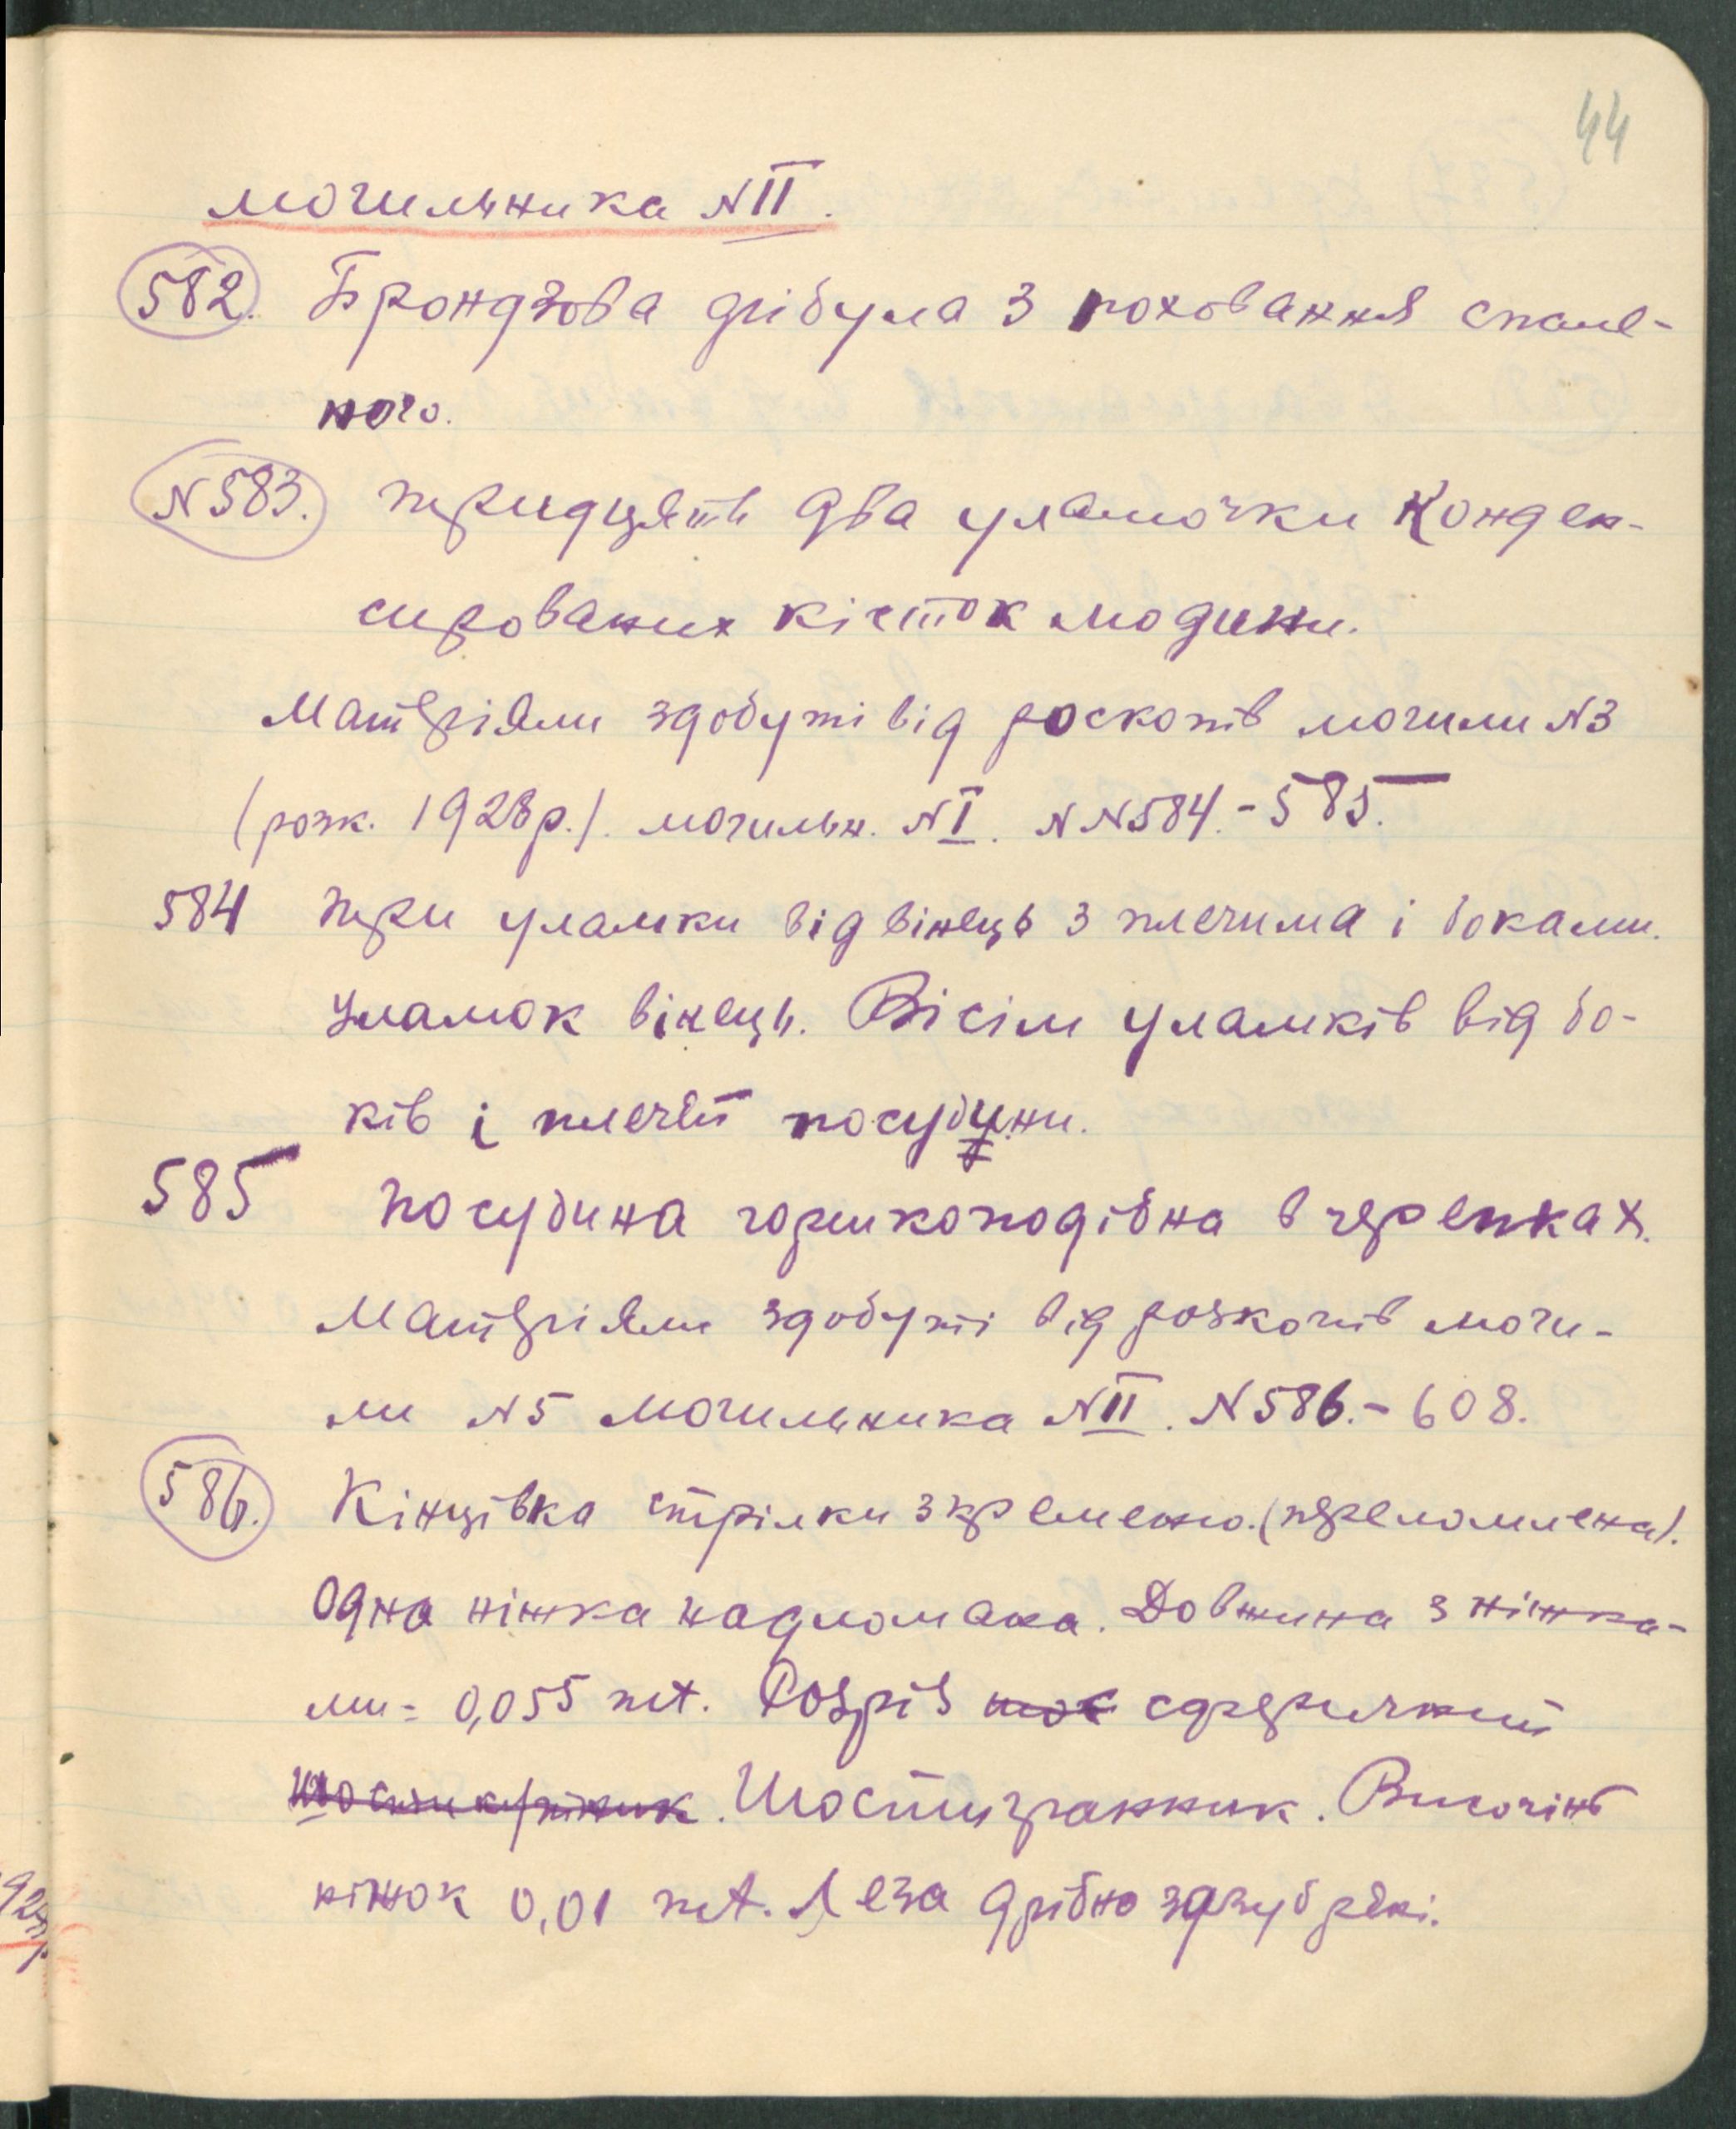 44
могильника №II.
582. Брондзова фібула з поховання спале-
ного.
N583. тридцять два уламочки конден-
сированих кісток людини.
Матеріяли здобуті від росkопів могили N3
(розк. 1928р.). могильн. NI. NN584.-585.
584 три уламки від вінець з плечима і боками.
Уламок вінець. Вісім уламків від бо-
ків і плечей посудини.
585 Посудина горшкоподібна в черепках.
Матеріяли здобуті від розкопів моги-
ли N5 могильника NII. N586.-608.
586. Кінцівка стрілки з кременю. (переломлена).
Одна ніжка надломана. Довжина з ніжка-
ми = 0,055 mt. Розріз сферичний
шостикутник. Шостигранник. Височінь
ніжок 0,01 mt. Леза дрібно зазубрені.